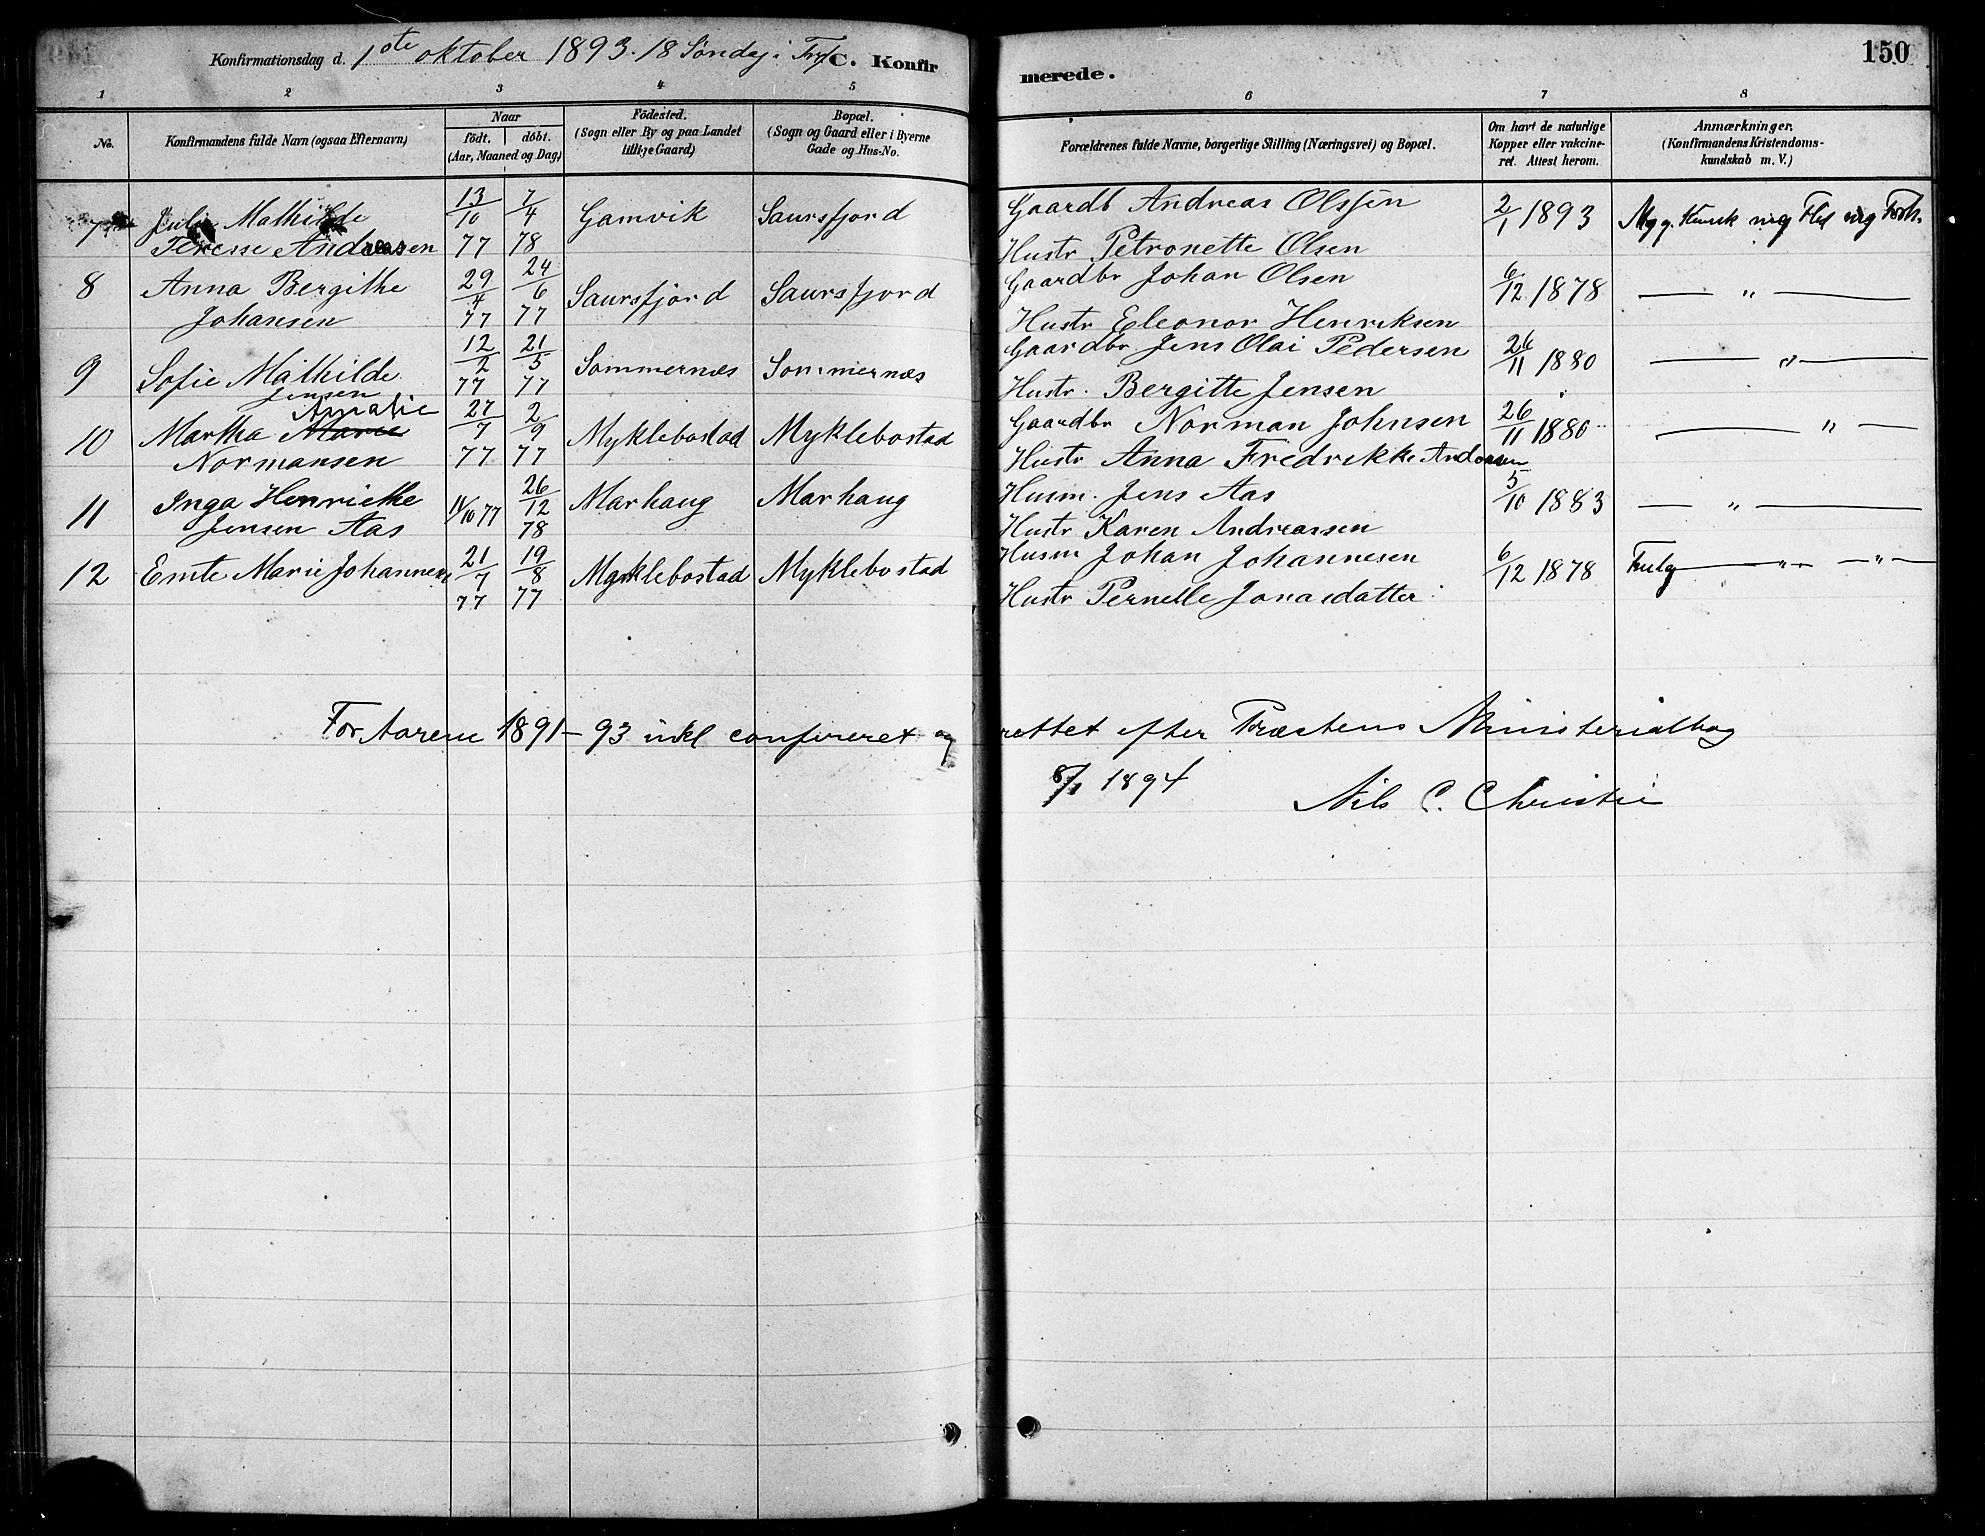 Konfirmationsdag d. 1ote oktober 1893. 18 Søndag i Tref C. Konfirmerede. 150
1 2 3 4 5 6 7 8
No. Konfirmandens fulde Navn (ogsaa Efternavn) Naar födt. döbt. (Aar, Maaned og Dag) Födested. (Sogn eller By og paa Landet tillige Gaard) Bopæl. (Sogn og Gaard eller i Byerne Gade og Hus-No. Forældrenes fulde Navne, borgerlige Stilling (Næringsvei) og Bopæl. Om havt de naturlige Kopper eller vakcineret. Attest herom. Anmærkninger. (Konfirmandens Kristendomskundskab m. V.)
7 Julie Mathilde 13/10 7/4 Gamvik Saursfjord Gaardb Andreas Olssen 2/1 1893 Mg g. Kunsk mg Flid mg Forh.
Teresse Andreasen 77 78 Hustr Petronette Olsen
8 Anna Bergithe 29/4 24/6 Saursfjord Saursfjord Gaardbr Johan Olsen 6/12 1878 — „ —
Johansen 77 77 Hustr Eleonor Henriksen
9 Sofie Mathilde 12/2 21/5 Sommernæs Sommernæs Gaardbr Jens Olai Pedersen 26/11 1880 — „ —
Jensen 77 77 Hustr. Bergitte Jensen
Amalie
10 Martha Marie 27/7 2/9 Myklebostad Myklebostad Gaardbr Norman Johnsen 26/11 1880 — „ —
Normansen 77 77 Hustr Anna Fredrikke Andersen
11 Inga Henriette 11/10 77 26/12 Marhaug Marhaug Husm. Jens Aas 5/10 1883 — „ —
Jensen Aas 78 Hustr Karen Andreassen
12 Emte Marie Johannes 21/7 19/8 Myklebostad Myklebostad Husm Johan Johannesen 6/12 1878 — „ — — „ —
77 77 Hustr Pernelle Jonasdatter
For Aarene 1891–93 inkl confereret og rettet efter Præstens Ministerialbog
8/1 1894 Nils C. Christie